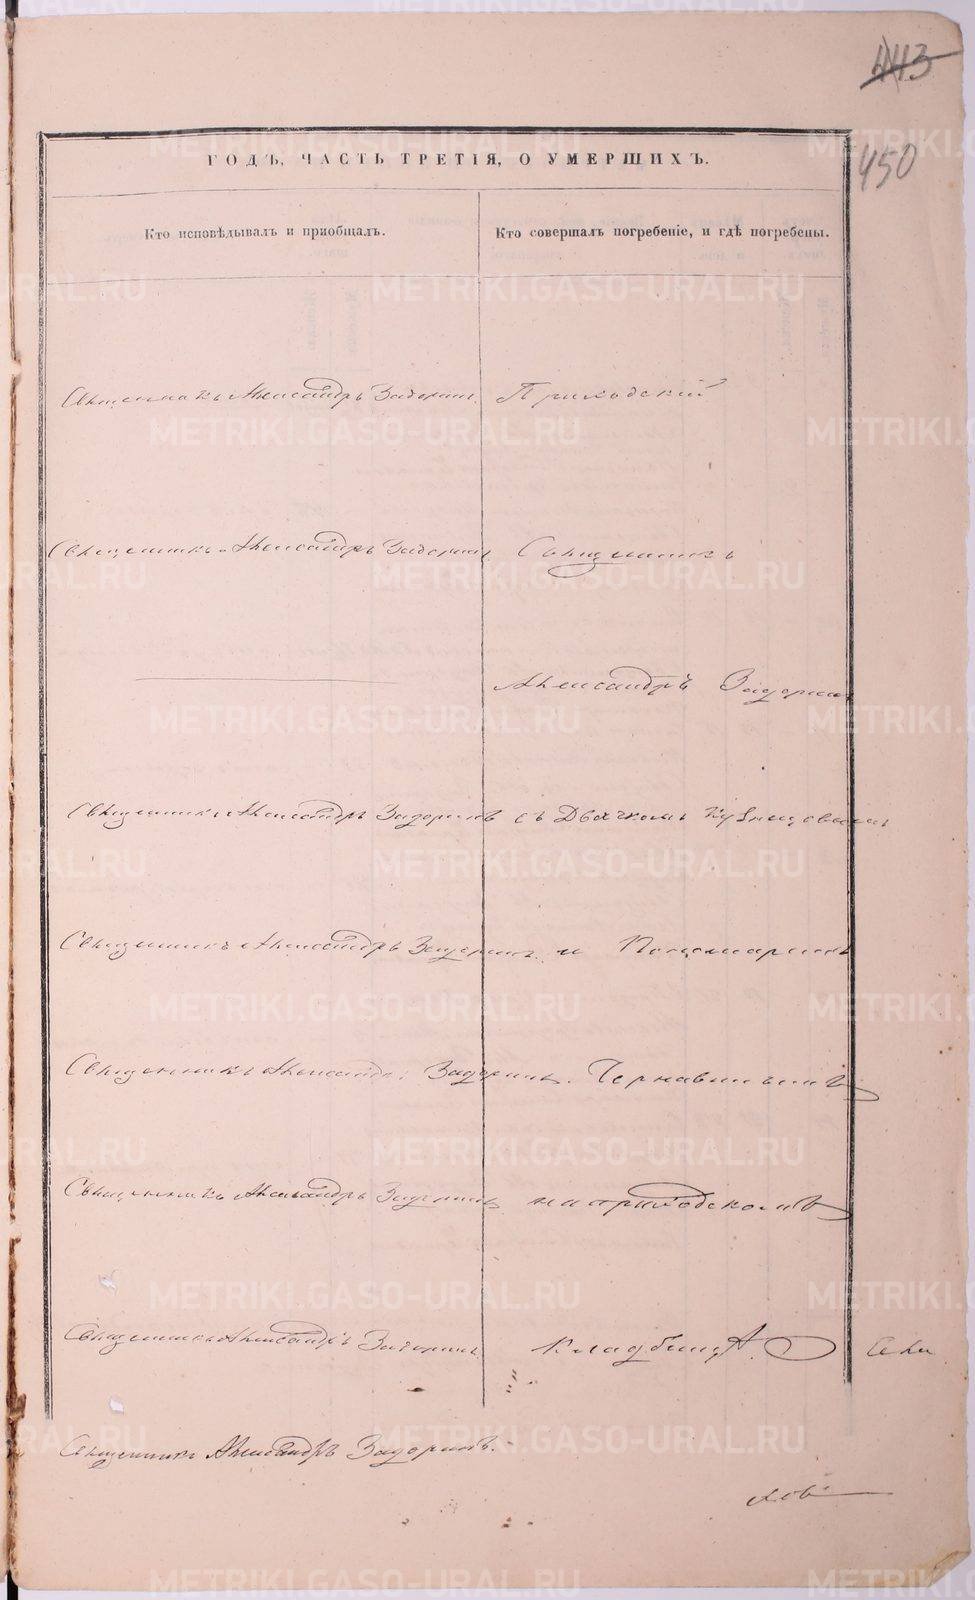 443
450
ГОДЪ, ЧАСТЬ ТРЕТІЯ, О УМЕРШИХЪ.
Кто исповѣдывалъ и пріобщалъ.
Кто совершалъ погребеніе, и гдѣ погребены.
Священникъ Александръ Задоринъ
Приходскій
Священникъ Александръ Задоринъ
Священникъ
Александръ Задоринъ
Священникъ Александръ Задоринъ
съ Дьячкомъ Кузнецовымъ
Священникъ Александръ Задоринъ
и Пономаремъ
Священникъ Александръ Задоринъ.
Чернавинымъ
Священникъ Александръ Задоринъ
на приходскомъ
Священникъ Александръ Задоринъ
кладбищѣ.
Священникъ Александръ Задоринъ.
METRIKI.GASO-URAL.RU